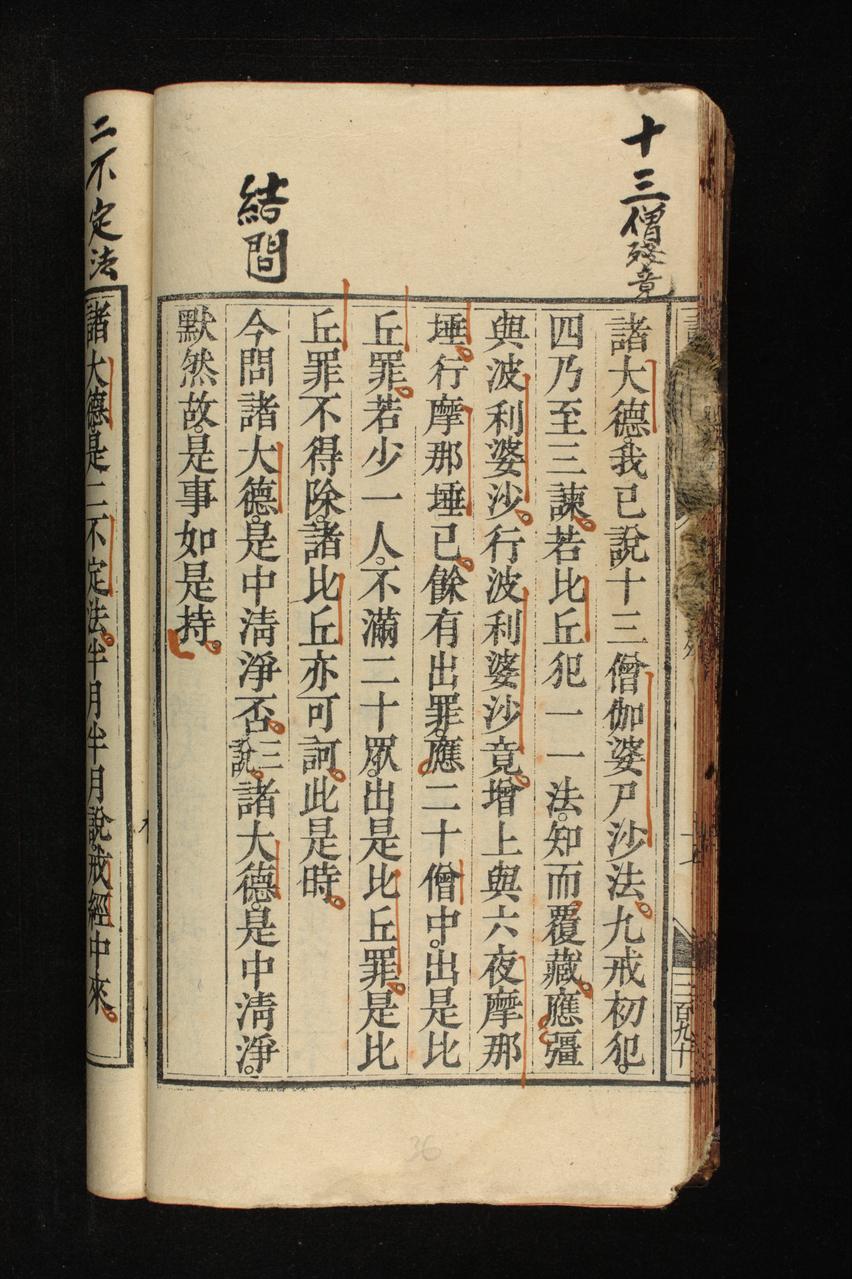 十三僧殘竟
諸大德我已說十三僧伽婆尸沙法九戒初犯
四乃至三諫若比丘犯一一法知而覆藏應彊
與波利婆沙行波利婆沙竟增上與六夜摩那
埵行摩那埵已餘有出罪應二十僧中出是比
丘罪若少一人不滿二十眾出是比丘罪是比
丘罪不得除諸比丘亦可訶此是時
結問
今問諸大德是中淸淨否三說諸大德是中淸淨
默然故是事如是持
二不定法
諸大德是二不定法半月半月說戒經中來
三百九十
36